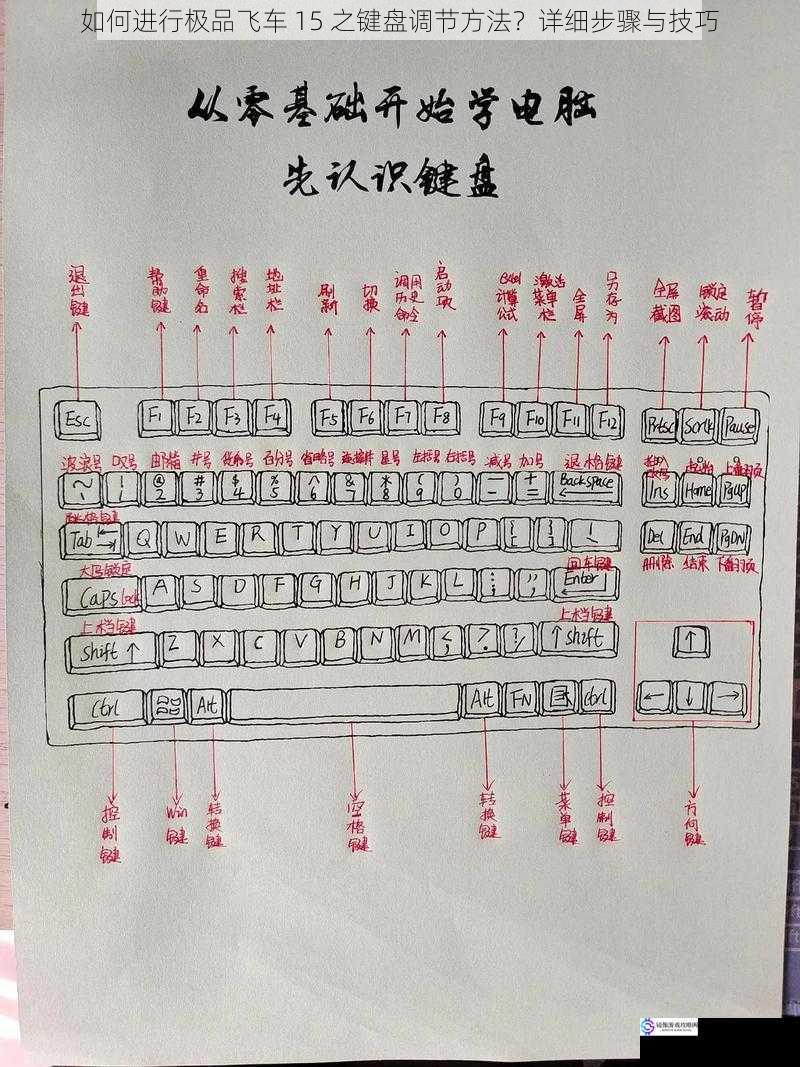 如何进行极品飞车 15 之键盘调节方法？详细步骤与技巧
从零基础开始学电脑
先认识键盘
退出键 帮助键 重命名 搜索栏 地址栏 刷新 切换 调用历史命令 启动项 Excel计算公式 激活菜单栏 全屏 另存为 全屏截图 锁定滚动 暂停
Esc F1 F2 F3 F4 F5 F6 F7 F8 F9 F10 F11 F12 Prtsc Scrlk Pause
波浪号 邮箱 井号 货币号 百分号 省略号 连接符 星号 左括号 右括号 减号 加号 退格键 上翻页
~ ` ! 1 @ 2 # 3 $ 4 % 5 ^ 6 & 7 * 8 ( 9 ) 0 — - + = BackSpace Ins Home PgUp
Tab Q W E R T Y U I O P { [ } ] Del End PgDN
大写锁定 回车键 删除 结束 下翻页
Caps lock A S D F G H J K L Enter
上档键 上档键
Shift ↑ Z X C V B N M ↑ Shift ↑
Ctrl Alt Alt FN Ctrl ← ↓ →
控制键 Win键 转换键 空格键 转换键 菜单键 控制键 方向键
镜像游戏攻略网